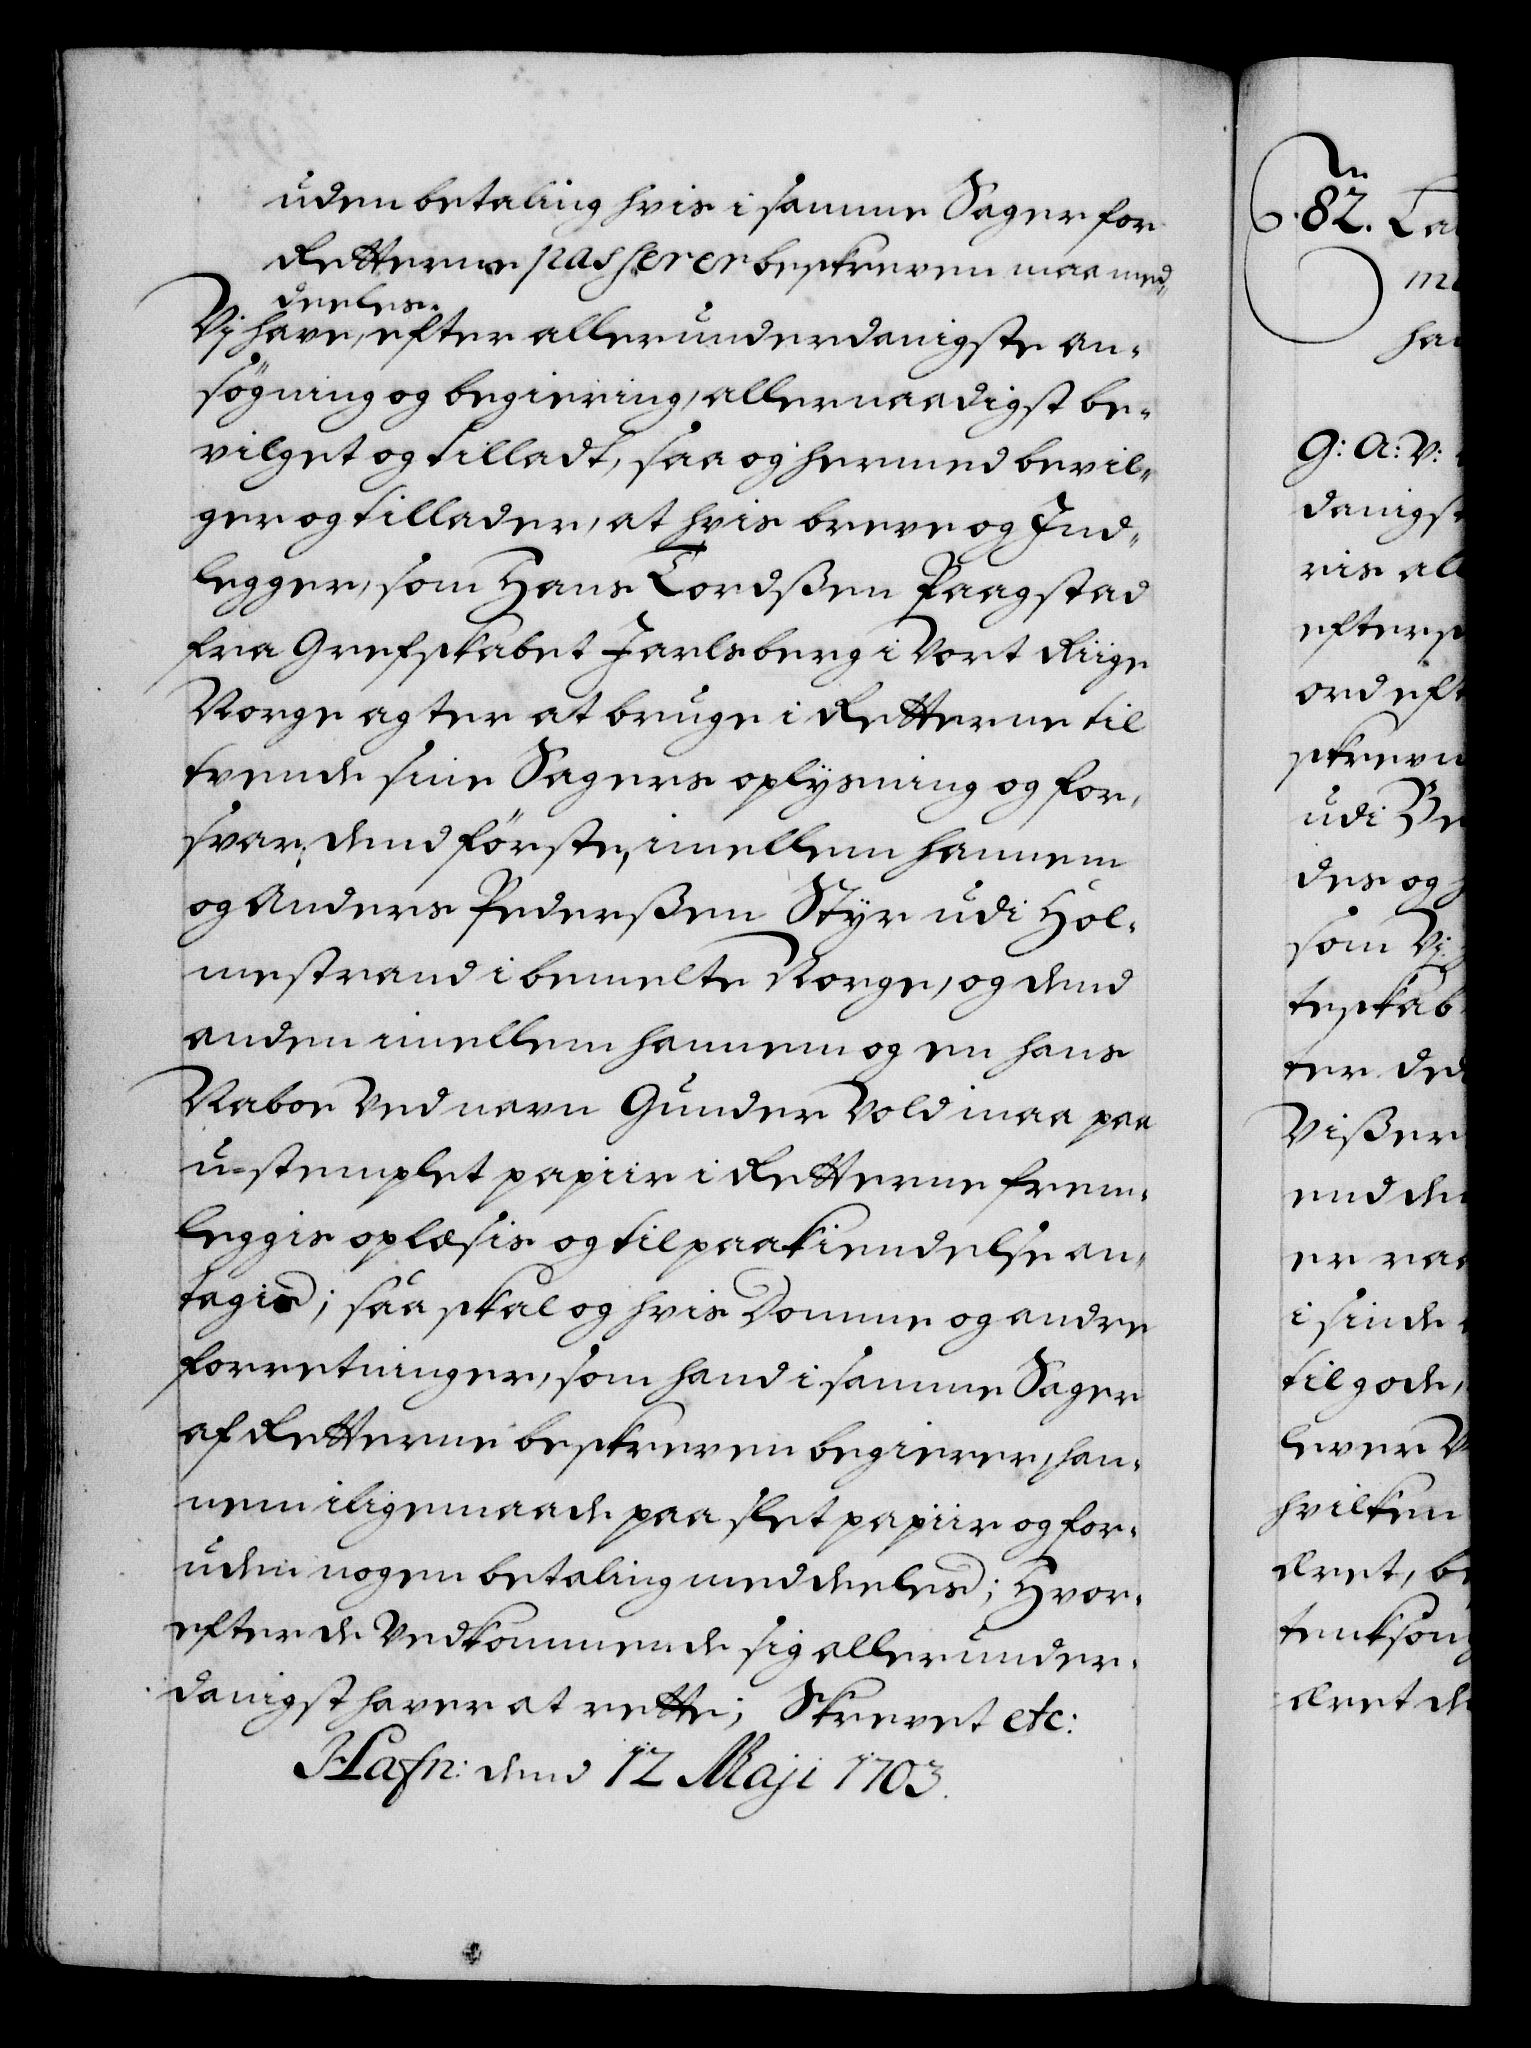 uden betaling hvis i samme Sager for
Retterne passerer beskreven maa med„
deeles.
Vj have, efter allerunderdanigste an„
søgning og begiering, allernaadigst be„
vilget og tilladt, saa og hermed bevil„
ger og tillader, at hvis breve og Ind„
legger, som Hans Tordsßen Paagstad
fra Grefskabet Jarlsberg i Vort Riige
Norge agter at bruge i Retterne til
tvende sine Sagers oplysning og for„
svar, dend første, imellem hannem
og Anders Pederßen Styr udi Hol„
mestrand i bemelte Norge, og dend
anden imellem hannem og en hans
Naboe Ved navn Gunder Vold maa paa
u-stemplet papiir i Retterne frem„
leggis oplæsis og til paakiendelse an„
tagis; saa skal og hvis Domme og andre
forretninger, som hand i samme Sager
af Retterne beskreven begierer, han„
nem iligemaade paa slet papiir og for„
uden nogen betaling meddeeles; Hvor„
efter de Vedkommende sig allerunder„
danigst haver at rette; Skrevet etc:
Hafn: dend 12 Maji 1703.
82.
G: A: V:
danigst
ris all
efters
ord eft
skrevn
udi Be
des og
som Vj
teskab
ter ded
Vißer
end de
er raa
i sinde
til gode,
lever V
hvilken
æret, be
tenksom
æret de